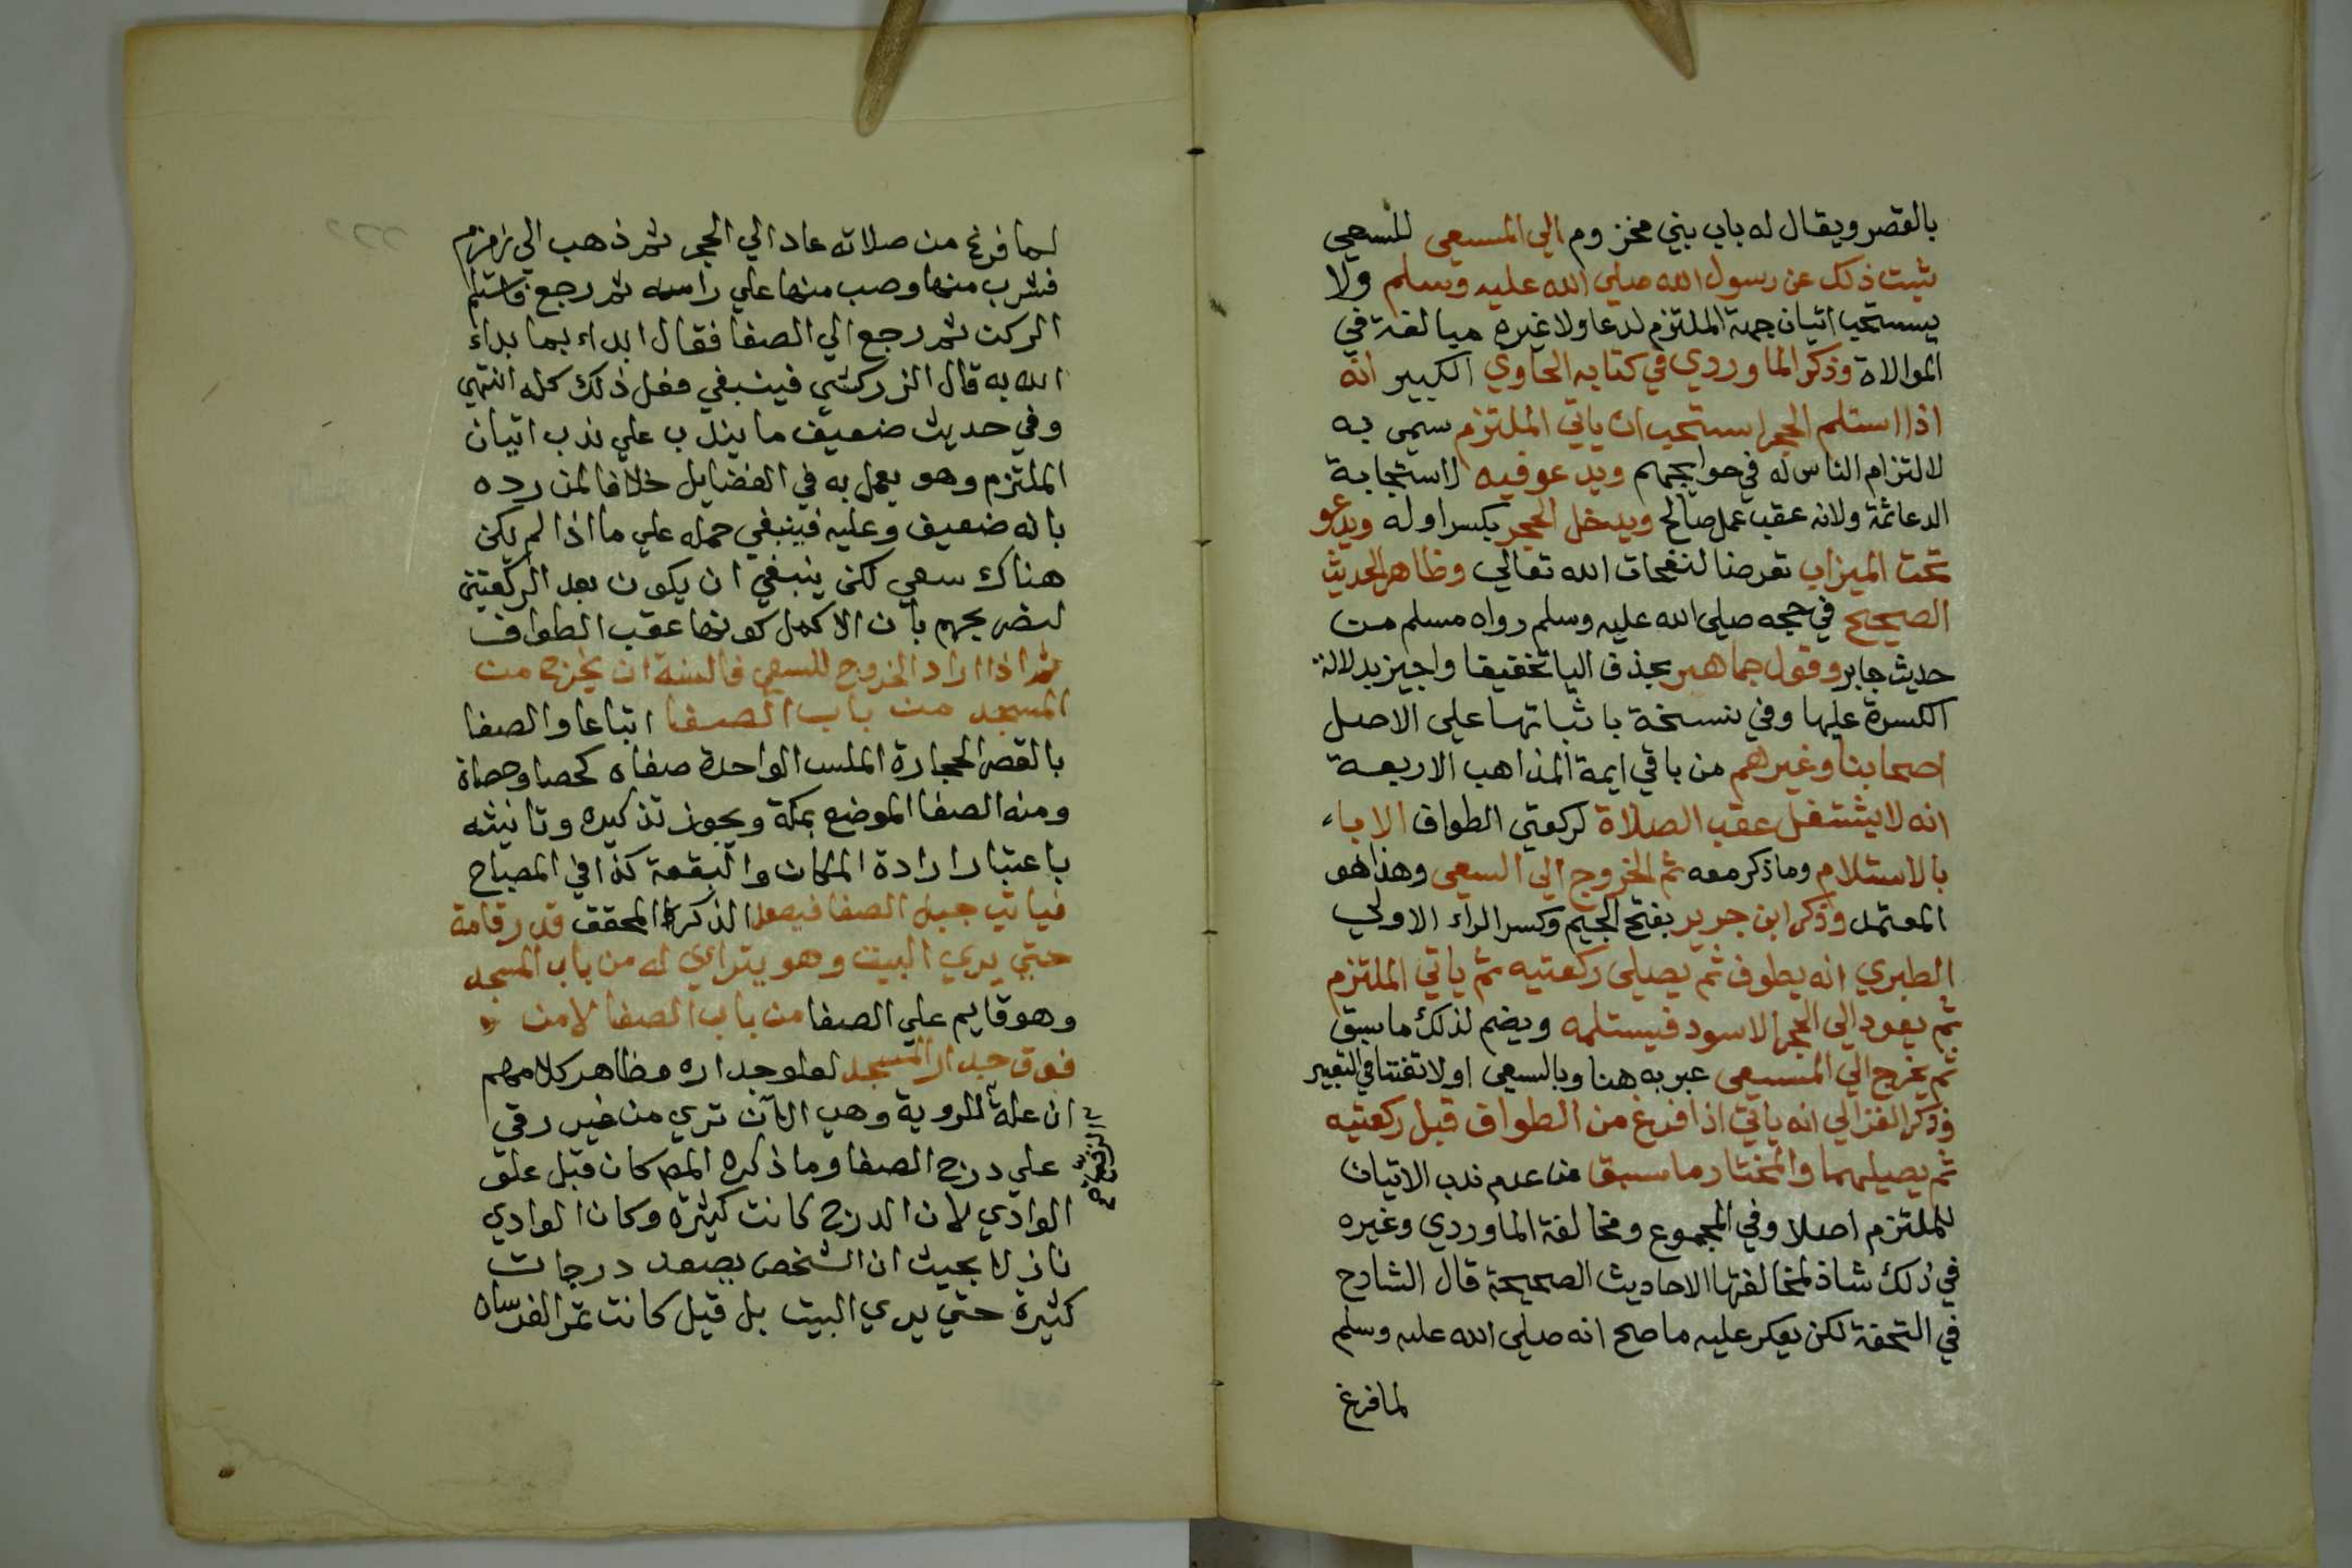 بالقصر ويقال له باب بني مخزوم الي المسعي للسعي
ثبت ذلك عن رسول الله صلي الله عليه وسلم ولا
يستحب اتيان جهة الملتزم لدعا ولا غيره مبالغة في
الموالاة وذكر الماوردي في كتابه الحاوي الكبير انه
اذا استلم الحجر استحب ان ياتي الملتزم سمي به
لالتزام الناس له في حوايجهم ويدعو فيه لاستجابة
الدعا ثمة ولانه عقب عمل صالح ويدخل الحجر بكسر اوله ويدعو
تحت الميزاب تعرضا لنفحات الله تعالي وظاهر الحديث
الصحيح في حجه صلي الله عليه وسلم رواه مسلم من
حديث جابر وقول جماهير بحذف اليا تخفيفا واجيز بدلالة
الكسرة عليها وفي نسخة باثباتها علي الاصل
اصحابنا وغيرهم من باقي ايمة المذاهب الاربعة
انه لا يشتغل عقب الصلاة لركعتي الطواف الا باء
بالاستلام وما ذكر معه ثم الخروج الي السعي وهذا هو
المعتمد وذكر ابن جرير بفتح الجيم وكسر الراء الاولي
الطبري انه يطوف ثم يصلي ركعتيه ثم ياتي الملتزم
ثم يعود الي الحجر الاسود فيستلمه ويضم لذلك ما سبق
ثم يخرج الي المسعي عبر به هنا وبالسعي اولا تفننا في التعبير
وذكر الغزالي انه ياتي اذا فرغ من الطواف قبل ركعتيه
ثم يصليهما والمختار ما سبق من عدم ندب الاتيان
للملتزم اصلا وفي المجموع ومخالفة الماوردي وغيره
في ذلك شاذ لمخالفتها الاحاديث الصحيحة قال الشارح
في التحفة لكن يعكر عليه ما صح انه صلي الله عليه وسلم
لما فرغ
لما فرغ من صلاته عاد الي الحجر ثم ذهب الي زمزم
فشرب منها وصب منها علي راسه ثم رجع فاستلم
الركن ثم رجع الي الصفا فقال ابداء بما بداء
الله به قال الزركشي فينبغي فعل ذلك كله انتهي
وفي حديث ضعيف ما يدل ب علي ندب اتيان
الملتزم وهو يعمل به في الفضايل خلافا لمن رده
بانه ضعيف وعليه فينبغي حمله علي ما اذا لم يكن
هناك سعي لكن ينبغي ان يكون بعد الركعتين
لتصريحهم بان الاكمل كونها عقب الطواف
ثم اذا اراد الخروج للسعي فالسنة ان يخرج من
المسجد من باب الصفا اتباعا والصفا
بالقصر الحجارة الملس الواحدة صفاه كحصا وحصاة
ومنه الصفا الموضع بمكة ويجوز تذكيره وتانيثه
باعتبار ارادة المكان والبقعة كذا في المصباح
فياتي جبل الصفا فيصعد الذكر المحقق قدر قامة
حتي يري البيت وهو يتراي له من باب المسجد
وهو قايم علي الصفا من باب الصفا لا من
فوق جدار المسجد لعلو جداره وظاهر كلامهم
ان علة الروية وهي الآن تري من غير رقي
علي درج الصفا وما ذكره المص كان قبل علو
الوادي لان الدرج كانت كثيرة وكان الوادي
نازلا بحيث ان الشخص يصعد درجات
كثيرة حتي يري البيت بل قيل كانت تمر الفرسان